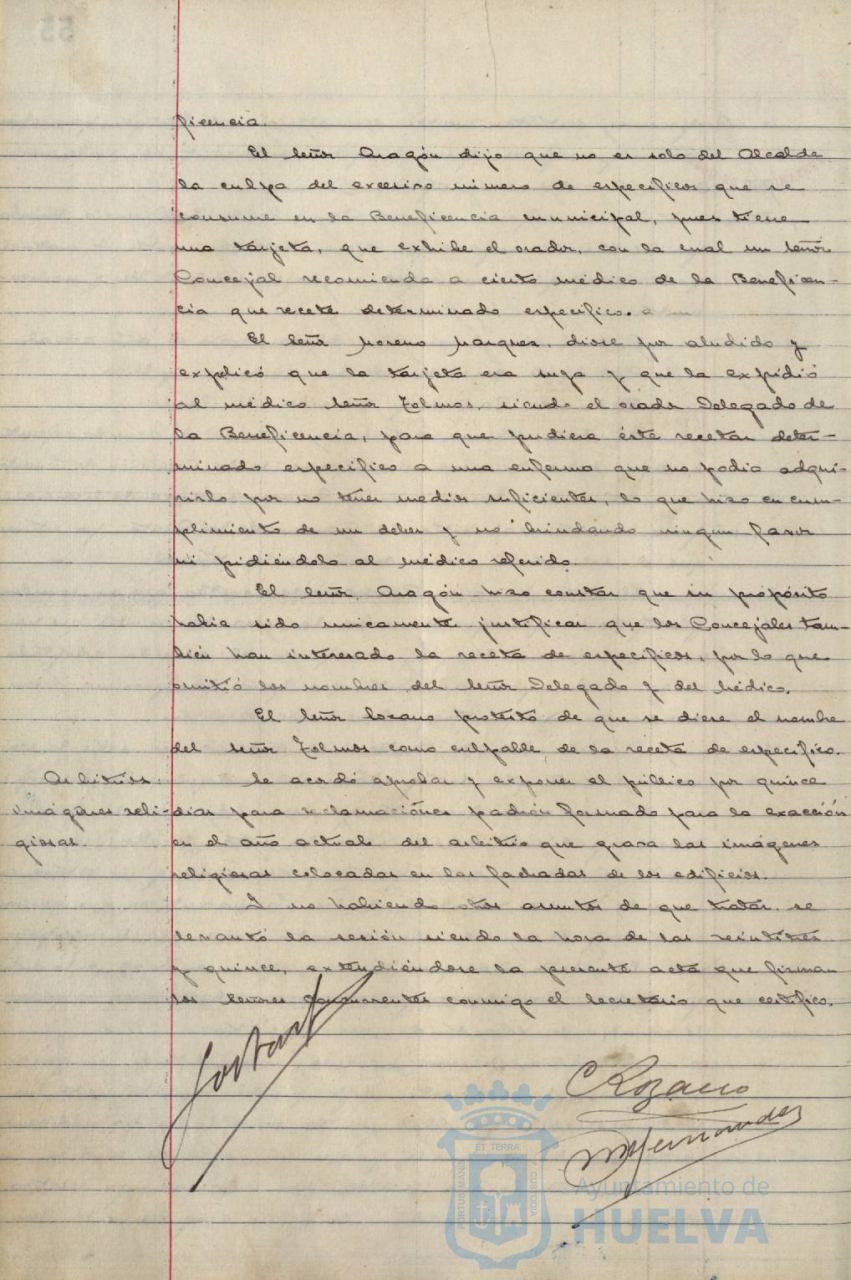 ficencia.
El señor Aragón dijo que no es solo del Alcalde
la culpa del excesivo número de específicos que se
consume en la Beneficencia municipal, pues tiene
una tarjeta, que exhibe el orador, con la cual un señor
Concejal recomienda a cierto médico de la Beneficen-
cia que recete determinado específico.
El señor Moreno Márquez, diose por aludido y
explicó que la tarjeta era suya y que la expidió
al médico señor Tolmos, siendo el orador Delegado de
la Beneficencia, para que pudiera éste recetar deter-
minado específico a una enferma que no podia adqui-
rirlo por no tener medios suficientes, lo que hizo en cum-
plimiento de un deber y no brindando ningun favor
ni pidiéndolo al médico referido.
El señor Aragón hizo constar que su propósito
habia sido unicamente justificar que los Concejales tam-
bién han interesado la receta de específicos, por lo que
omitió los nombres del señor Delegado y del Médico.
El señor Lozano protestó de que se diese el nombre
del señor Tolmos como culpable de la receta de específico.
Arbitrios:
imágenes reli-
giosas.
Se acordó aprobar y exponer al público por quince
dias para reclamaciones padrón formado para la exacción
en el año actual del arbitrio que grava las imágenes
religiosas colocadas en las fachadas de los edificios.
Y no habiendo otros asuntos de que tratar, se
levantó la sesión siendo la hora de las veintitres
y quince, extendiéndose la presente acta que firman
los señores concurrentes conmigo el Secretario que certifico.
ET TERRA
PORTUS MARIS
CUSTODIA
Ayuntamiento de
HUELVA